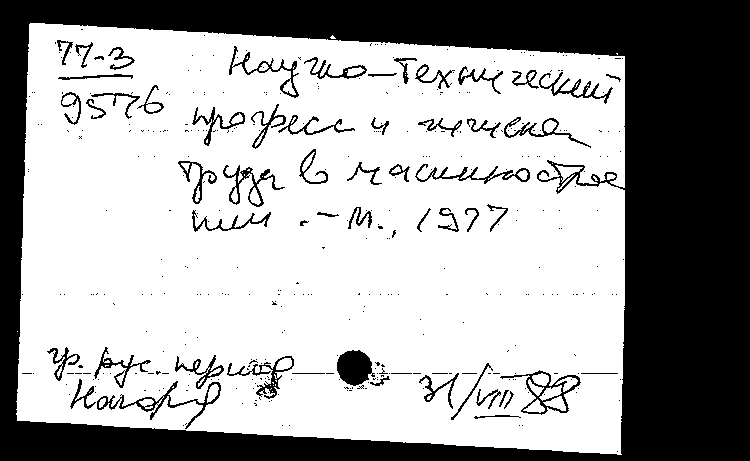 77-3 Научно-технический
9576 прогресс и гигиена
труда в машинострое
нии.-М., 1977
гр. рус. период
31/VIII 88